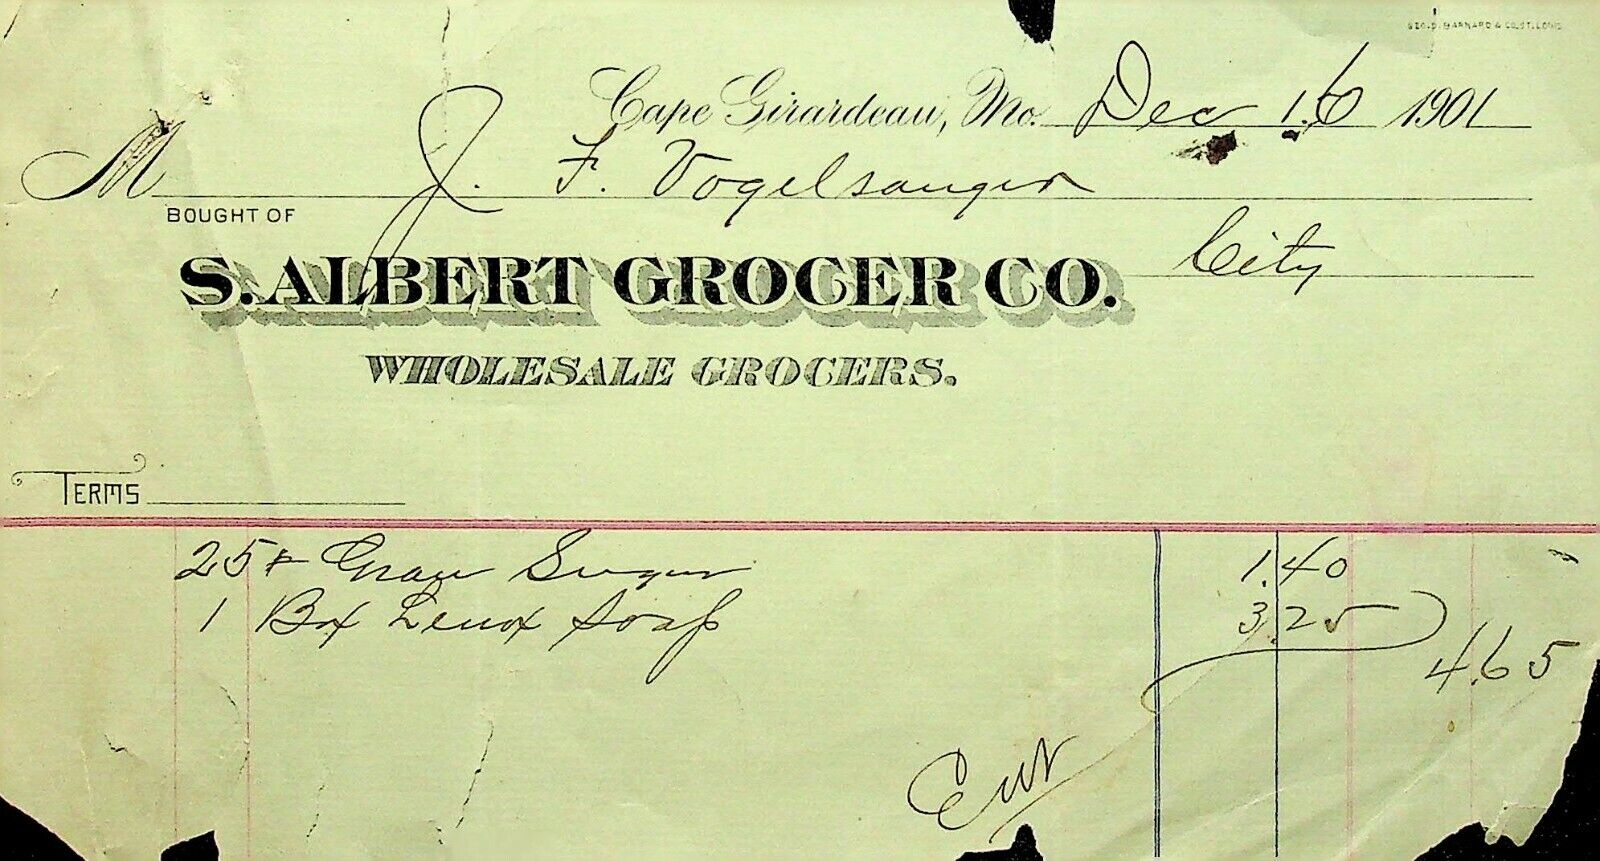 GEO. D. BARNARD & CO. ST. LOUIS
Cape Girardeau, Mo. Dec 16 1901
M J. F. Vogelsanger
BOUGHT OF
City
S. ALBERT GROCER CO.
WHOLESALE GROCERS.
TERMS
25# Gran Sugar 1.40
1 Box Lenox Soap 3.25
4.65